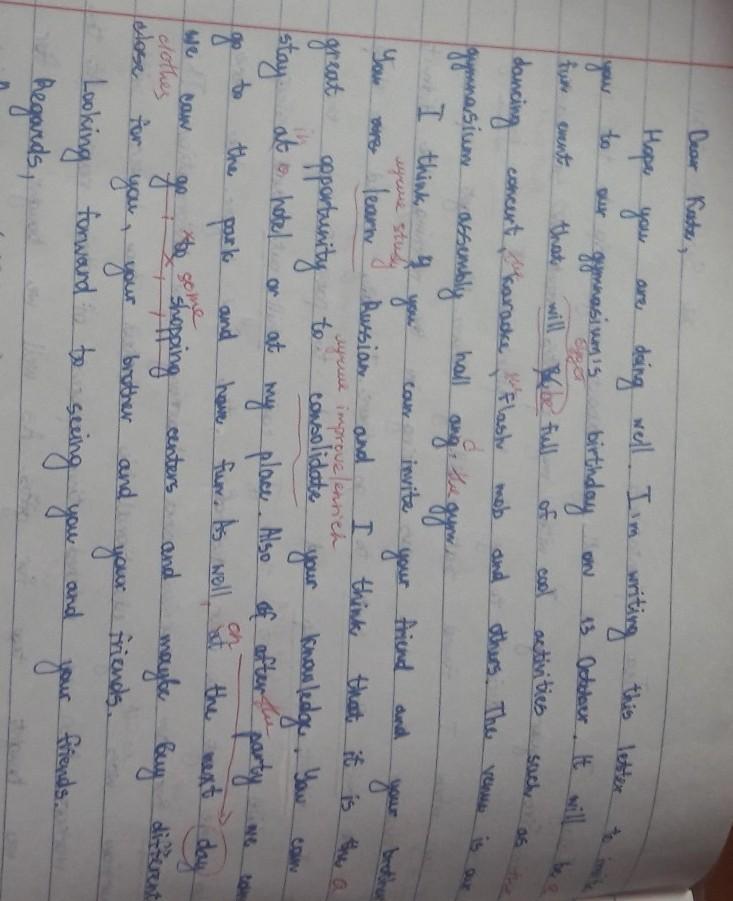 Dear Kate,
Hope you are doing well. I'm writing this letter to invite
you to our gymnasium's birthday on 13 October. It will be a
fun event that will be full of cool activities such as the
dancing concert, the karaoke, flash mob and others. The venue is our
gymnasium assembly hall and the gym
I think you can invite your friend and your brother
лучше study
You learn Russian and I think that it is the a
great opportunity to consolidate your knowledge. You can
лучше improve/enrich
in
stay at a hotel or at my place. Also after the party we can
go to the park and have fun. As well, at the next day
on
we can go to some shopping centers and maybe buy different
clothes
close for you, your brother and your friends.
Looking forward to seeing you and your friends.
Regards,